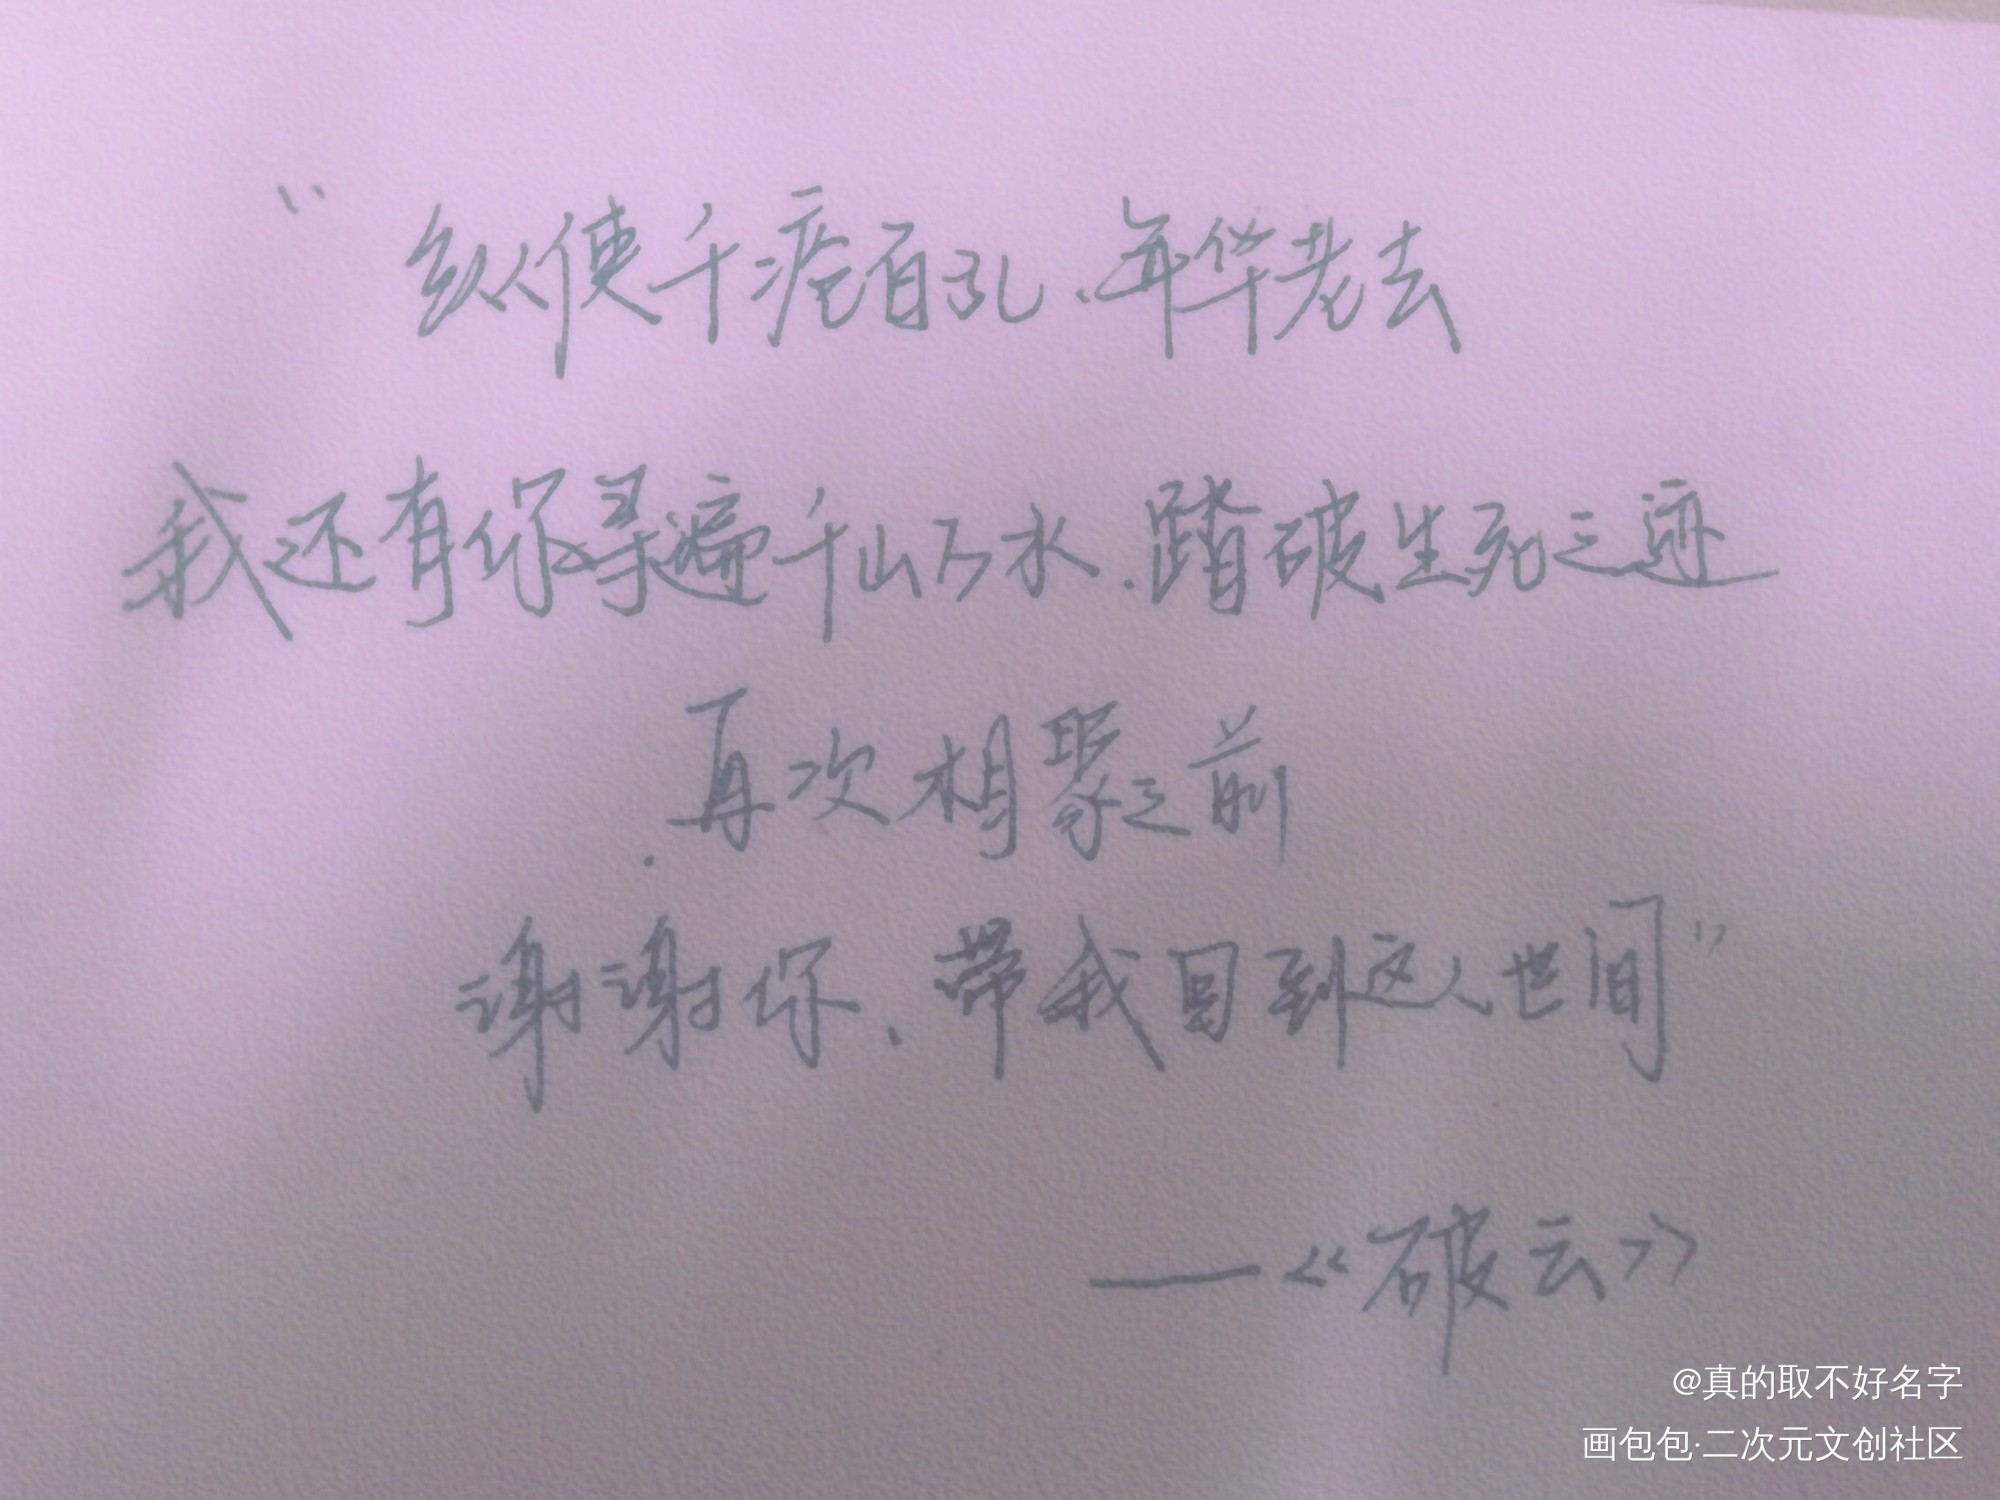 “纵使千疮百孔、年华老去
我还有你寻遍千山万水、踏破生死之迹
再次相聚之前
谢谢你、带我回到这人世间”
——《破云》
@真的取不好名字
画包包·二次元文创社区